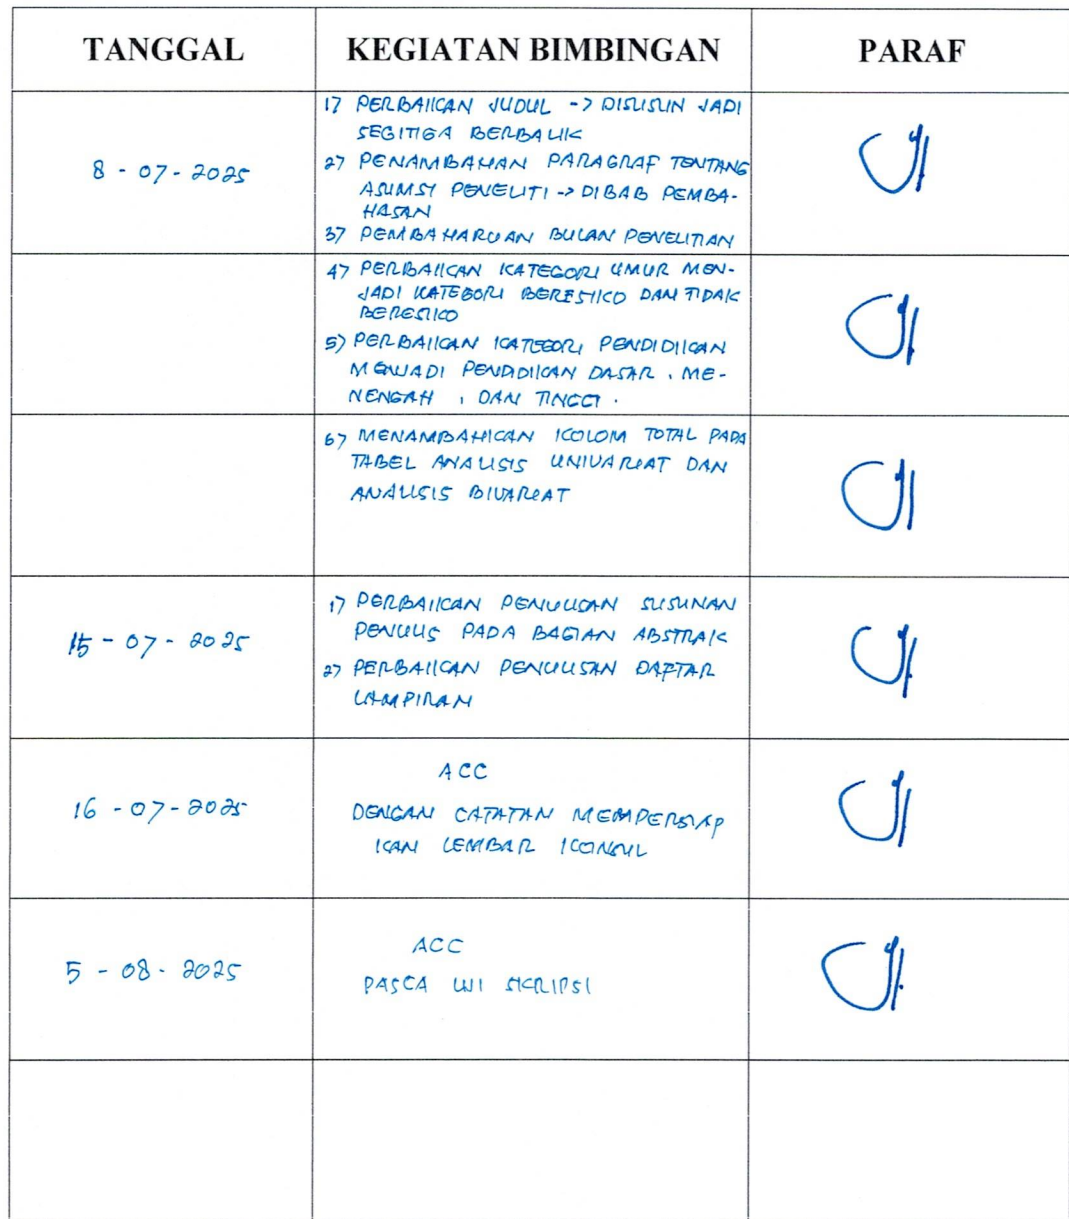 TANGGAL KEGIATAN BIMBINGAN PARAF
8 - 07 - 2025
1) PERBAIKAN JUDUL -> DISUSUN JADI
SEGITIGA BERBALIK
2) PENAMBAHAN PARAGRAF TENTANG
ASUMSI PENELITI -> DIBAB PEMBA-
HASAN
3) PEMBAHARUAN BULAN PENELITIAN
4) PERBAIKAN KATEGORI UMUR MEN-
JADI KATEGORI BERESIKO DAN TIDAK
BERESIKO
5) PERBAIKAN KATEGORI PENDIDIKAN
MENJADI PENDIDIKAN DASAR, ME-
NENGAH, DAN TINGGI.
6) MENAMBAHKAN KOLOM TOTAL PADA
TABEL ANALISIS UNIVARIAT DAN
ANALISIS BIVARIAT
15 - 07 - 2025
1) PERBAIKAN PENULISAN SUSUNAN
PENULIS PADA BAGIAN ABSTRAK
2) PERBAIKAN PENULISAN DAFTAR
LAMPIRAN
16 - 07 - 2025
ACC
DENGAN CATATAN MEMPERSIAP
KAN LEMBAR KONSUL
5 - 08 - 2025
ACC
PASCA UJI SKRIPSI